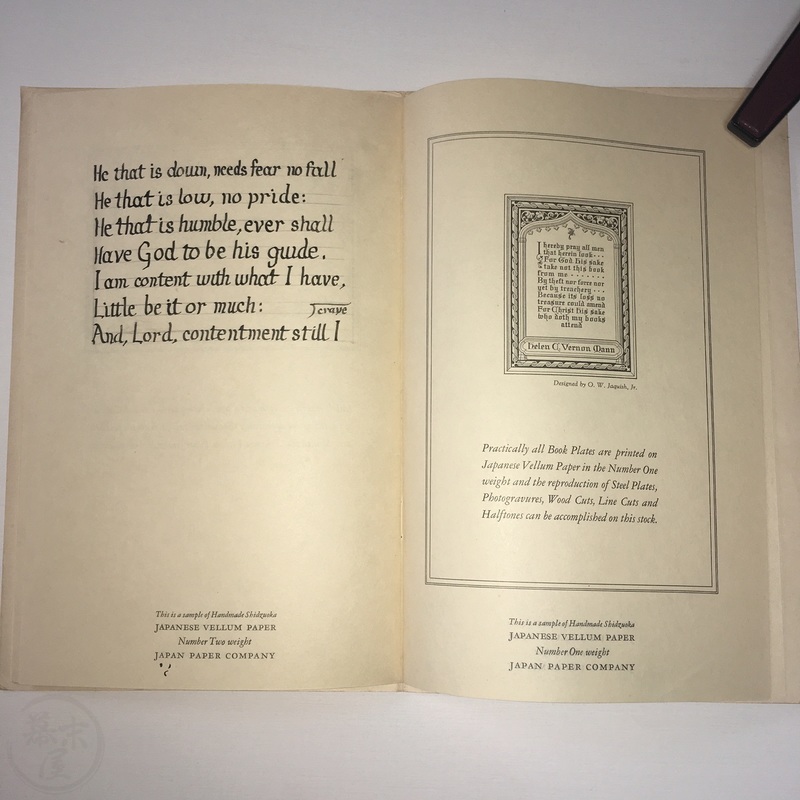 He that is down, needs fear no fall
He that is low, no pride:
He that is humble, ever shall
Have God to be his guide.
I am content with what I have,
Little be it or much:
I crave
And, Lord, contentment still I
This is a sample of Handmade Shidzuoka
JAPANESE VELLUM PAPER
Number Two weight
JAPAN PAPER COMPANY
I hereby pray all men
that herein look
For God His sake
take not this book
from me
By theft nor force nor
yet by treachery
Because its loss no
treasure could amend
For Christ His sake
who doth my books
attend
Helen C. Vernon Mann
Designed by O. W. Jaquish, Jr.
Practically all Book Plates are printed on
Japanese Vellum Paper in the Number One
weight and the reproduction of Steel Plates,
Photogravures, Wood Cuts, Line Cuts and
Halftones can be accomplished on this stock.
This is a sample of Handmade Shidzuoka
JAPANESE VELLUM PAPER
Number One weight
JAPAN PAPER COMPANY
幕末屋